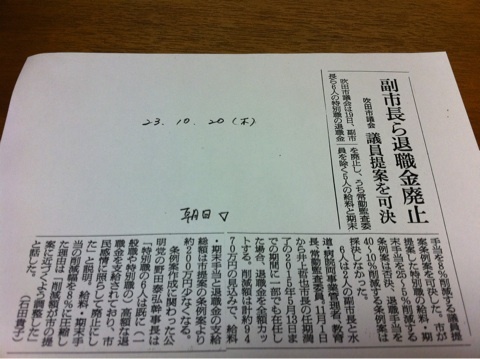 副市長ら退職金廃止
吹田市議会 議員提案を可決
吹田市議会は19日、副市
長ら6人の特別職の退職金
を廃止し、うち常勤監査委
員を除く5人の給料と期末
手当を8%削減する議員提
案条例案を可決した。市が
提案した特別職の給料・期
末手当を25〜5%削減する
条例案は否決、退職手当を
40〜10%削減する条例案は
採決しなかった。
6人は2人の副市長と水
道・病院両事業管理者、教育
長、常勤監査委員。11月1日
から井上哲也市長の任期満
了の2015年5月13日まで
の期間に一部でも在任し
た場合、退職金を全額カッ
トする。削減額は計約94
70万円の見込みで、給料
・期末手当と退職金の支給
総額は市提案の条例案より
約200万円少なくなる。
条例案作成に関わった公
明党の野田泰弘幹事長は
「特別職の6人は既に(一
般職や特別職の)高額な退
職金を支給されており、市
民感情に照らし廃止にし
た」と説明。給料・期末手
当の削減幅を8%に圧縮し
た理由は「削減額が市の提
案に近づくよう調整した」
と話した。(石田貴子)
23.10.20(木)
朝日▽